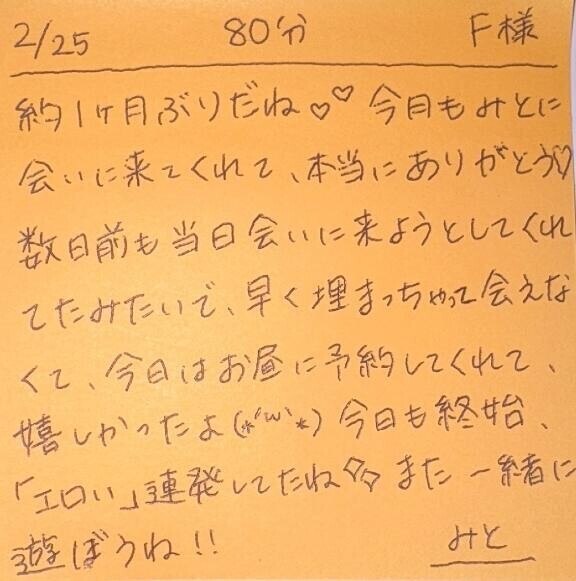 2/25 80分 F様
約1ヶ月ぶりだね♡♡ 今月もみとに
会いに来てくれて、本当にありがとう♡
数日前も当日会いに来ようとしてくれ
てたみたいで、早く埋まっちゃって会えな
くて、今日はお昼に予約してくれて、
嬉しかったよ(*´ω`*) 今日も終始、
「エロい」連発してたね✧✧ また一緒に
遊ぼうね!!
みと